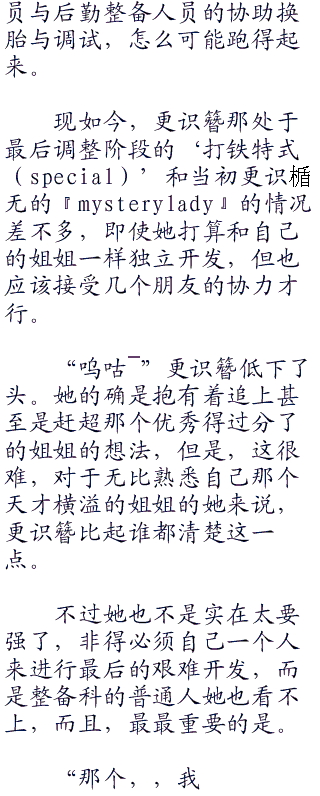 员与后勤整备人员的协助换
胎与调试，怎么可能跑得起
来。
现如今，更识簪那处于
最后调整阶段的‘打铁特式
（special）’和当初更识楯
无的『mysterylady』的情况
差不多，即使她打算和自己
的姐姐一样独立开发，但也
应该接受几个朋友的协力才
行。
“呜咕¯”更识簪低下了
头。她的确是抱有着追上甚
至是赶超那个优秀得过分了
的姐姐的想法，但是，这很
难，对于无比熟悉自己那个
天才横溢的姐姐的她来说，
更识簪比起谁都清楚这一
点。
不过她也不是实在太要
强了，非得必须自己一个人
来进行最后的艰难开发，而
是整备科的普通人她也看不
上，而且，最最重要的是。
“那个，，我